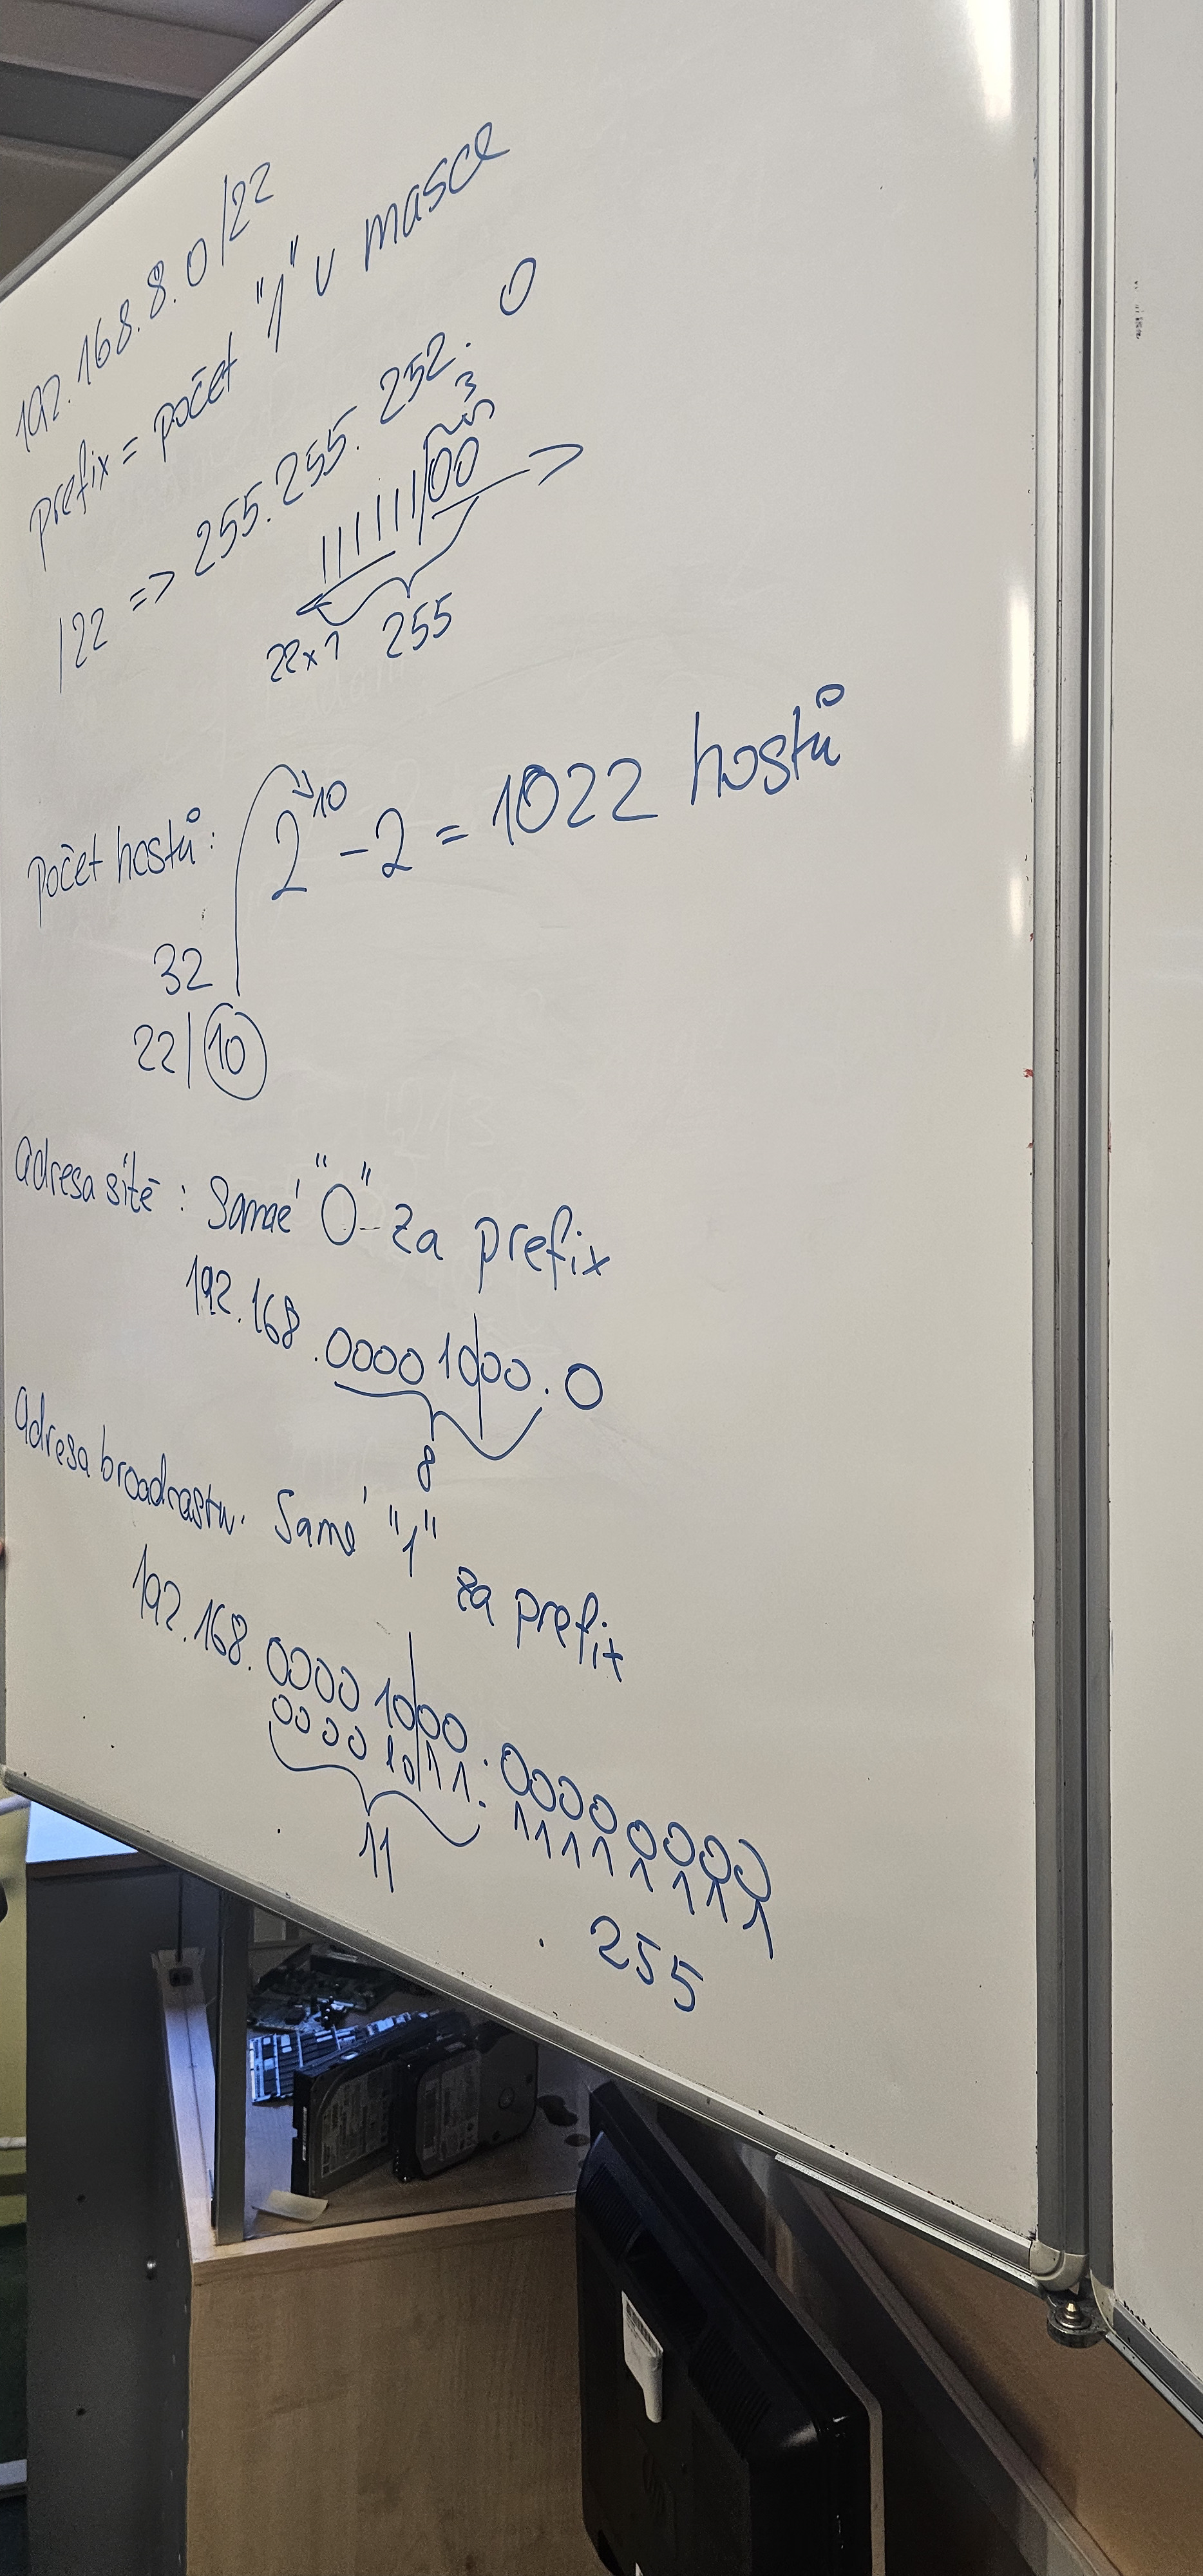 192.168.8.0/22
prefix = počet "1" v masce
/22 => 255.255.252.0
3
11111100
22x1 255
Počet hostů: 2^10 - 2 = 1022 hostů
32
22|10
Adresa sítě: Samé "0" za prefix
192.168.0000 1000.0
8
Adresa broadcastu. Samé "1" za prefix
192.168.0000 1000.00000000
0000 1011.11111111
11 . 255